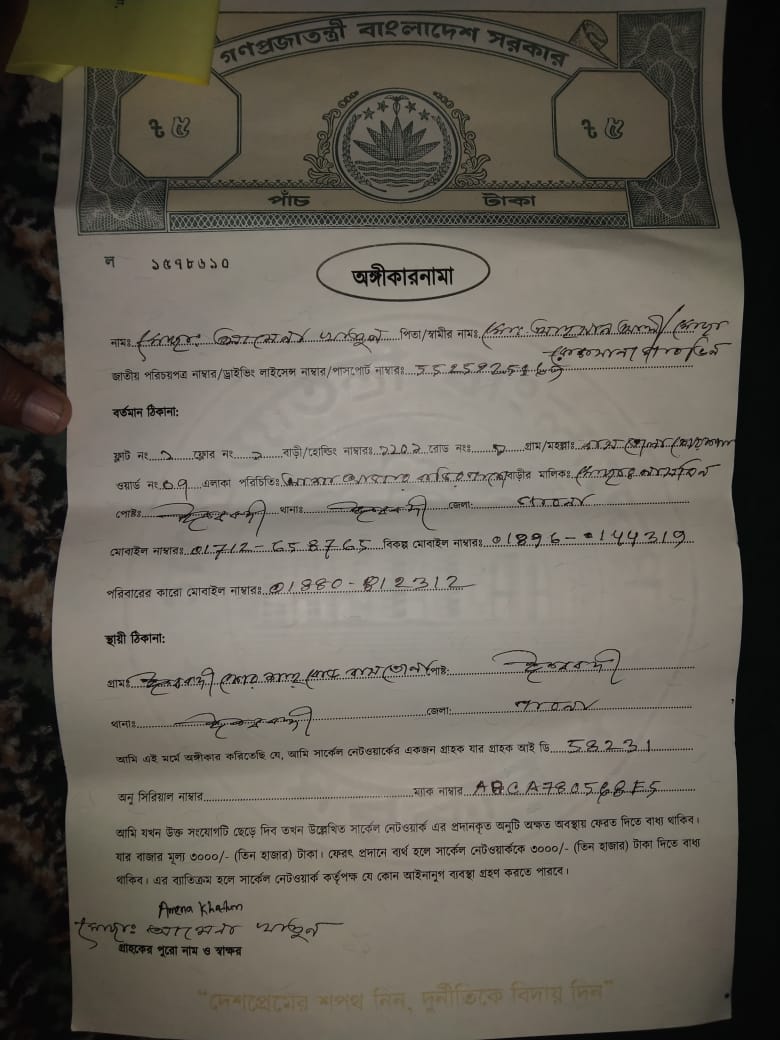 গণপ্রজাতন্ত্রী বাংলাদেশ সরকার
৳ ৫ ৳ ৫
পাঁচ টাকা
ল ১৫৭৮৬১০
অঙ্গীকারনামা
নামঃ মোছাঃ আমেনা খাতুন পিতা/স্বামীর নামঃ মোঃ
জাতীয় পরিচয়পত্র নাম্বার/ড্রাইভিং লাইসেন্স নাম্বার/পাসপোর্ট নাম্বারঃ
বর্তমান ঠিকানা:
ফ্লাট নং ১ ফ্লোর নং ১ বাড়ী/হোল্ডিং নাম্বারঃ রোড নংঃ গ্রাম/মহল্লাঃ
ওয়ার্ড নং 09 এলাকা পরিচিতিঃ বাড়ীর মালিকঃ
পোষ্টঃ ঈশ্বরদী থানাঃ ঈশ্বরদী জেলা: পাবনা
মোবাইল নাম্বারঃ 01712-658765 বিকল্প মোবাইল নাম্বারঃ 01896-0144319
পরিবারের কারো মোবাইল নাম্বারঃ 01880-812312
স্থায়ী ঠিকানা:
গ্রামঃ ঈশ্বরদী পোষ্ট: ঈশ্বরদী
থানাঃ ঈশ্বরদী জেলা: পাবনা
আমি এই মর্মে অঙ্গীকার করিতেছি যে, আমি সার্কেল নেটওয়ার্কের একজন গ্রাহক যার গ্রাহক আই ডি 58231
অনু সিরিয়াল নাম্বার ম্যাক নাম্বার
আমি যখন উক্ত সংযোগটি ছেড়ে দিব তখন উল্লেখিত সার্কেল নেটওয়ার্ক এর প্রদানকৃত অনুটি অক্ষত অবস্থায় ফেরত দিতে বাধ্য থাকিব।
যার বাজার মূল্য ৩০০০/- (তিন হাজার) টাকা। ফেরৎ প্রদানে ব্যর্থ হলে সার্কেল নেটওয়ার্ককে ৩০০০/- (তিন হাজার) টাকা দিতে বাধ্য
থাকিব। এর ব্যাতিক্রম হলে সার্কেল নেটওয়ার্ক কর্তৃপক্ষ যে কোন আইনানুগ ব্যবস্থা গ্রহণ করতে পারবে।
Amena Khatun
মোছাঃ আমেনা খাতুন
গ্রাহকের পুরো নাম ও স্বাক্ষর
"দেশপ্রেমের শপথ নিন, দুর্নীতিকে বিদায় দিন"